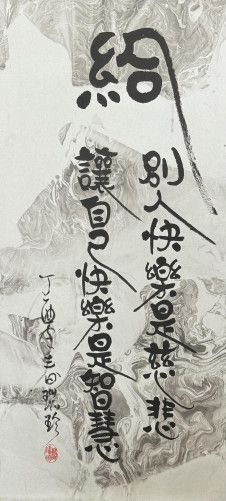 給
別人快樂是慈悲
讓自己快樂是智慧